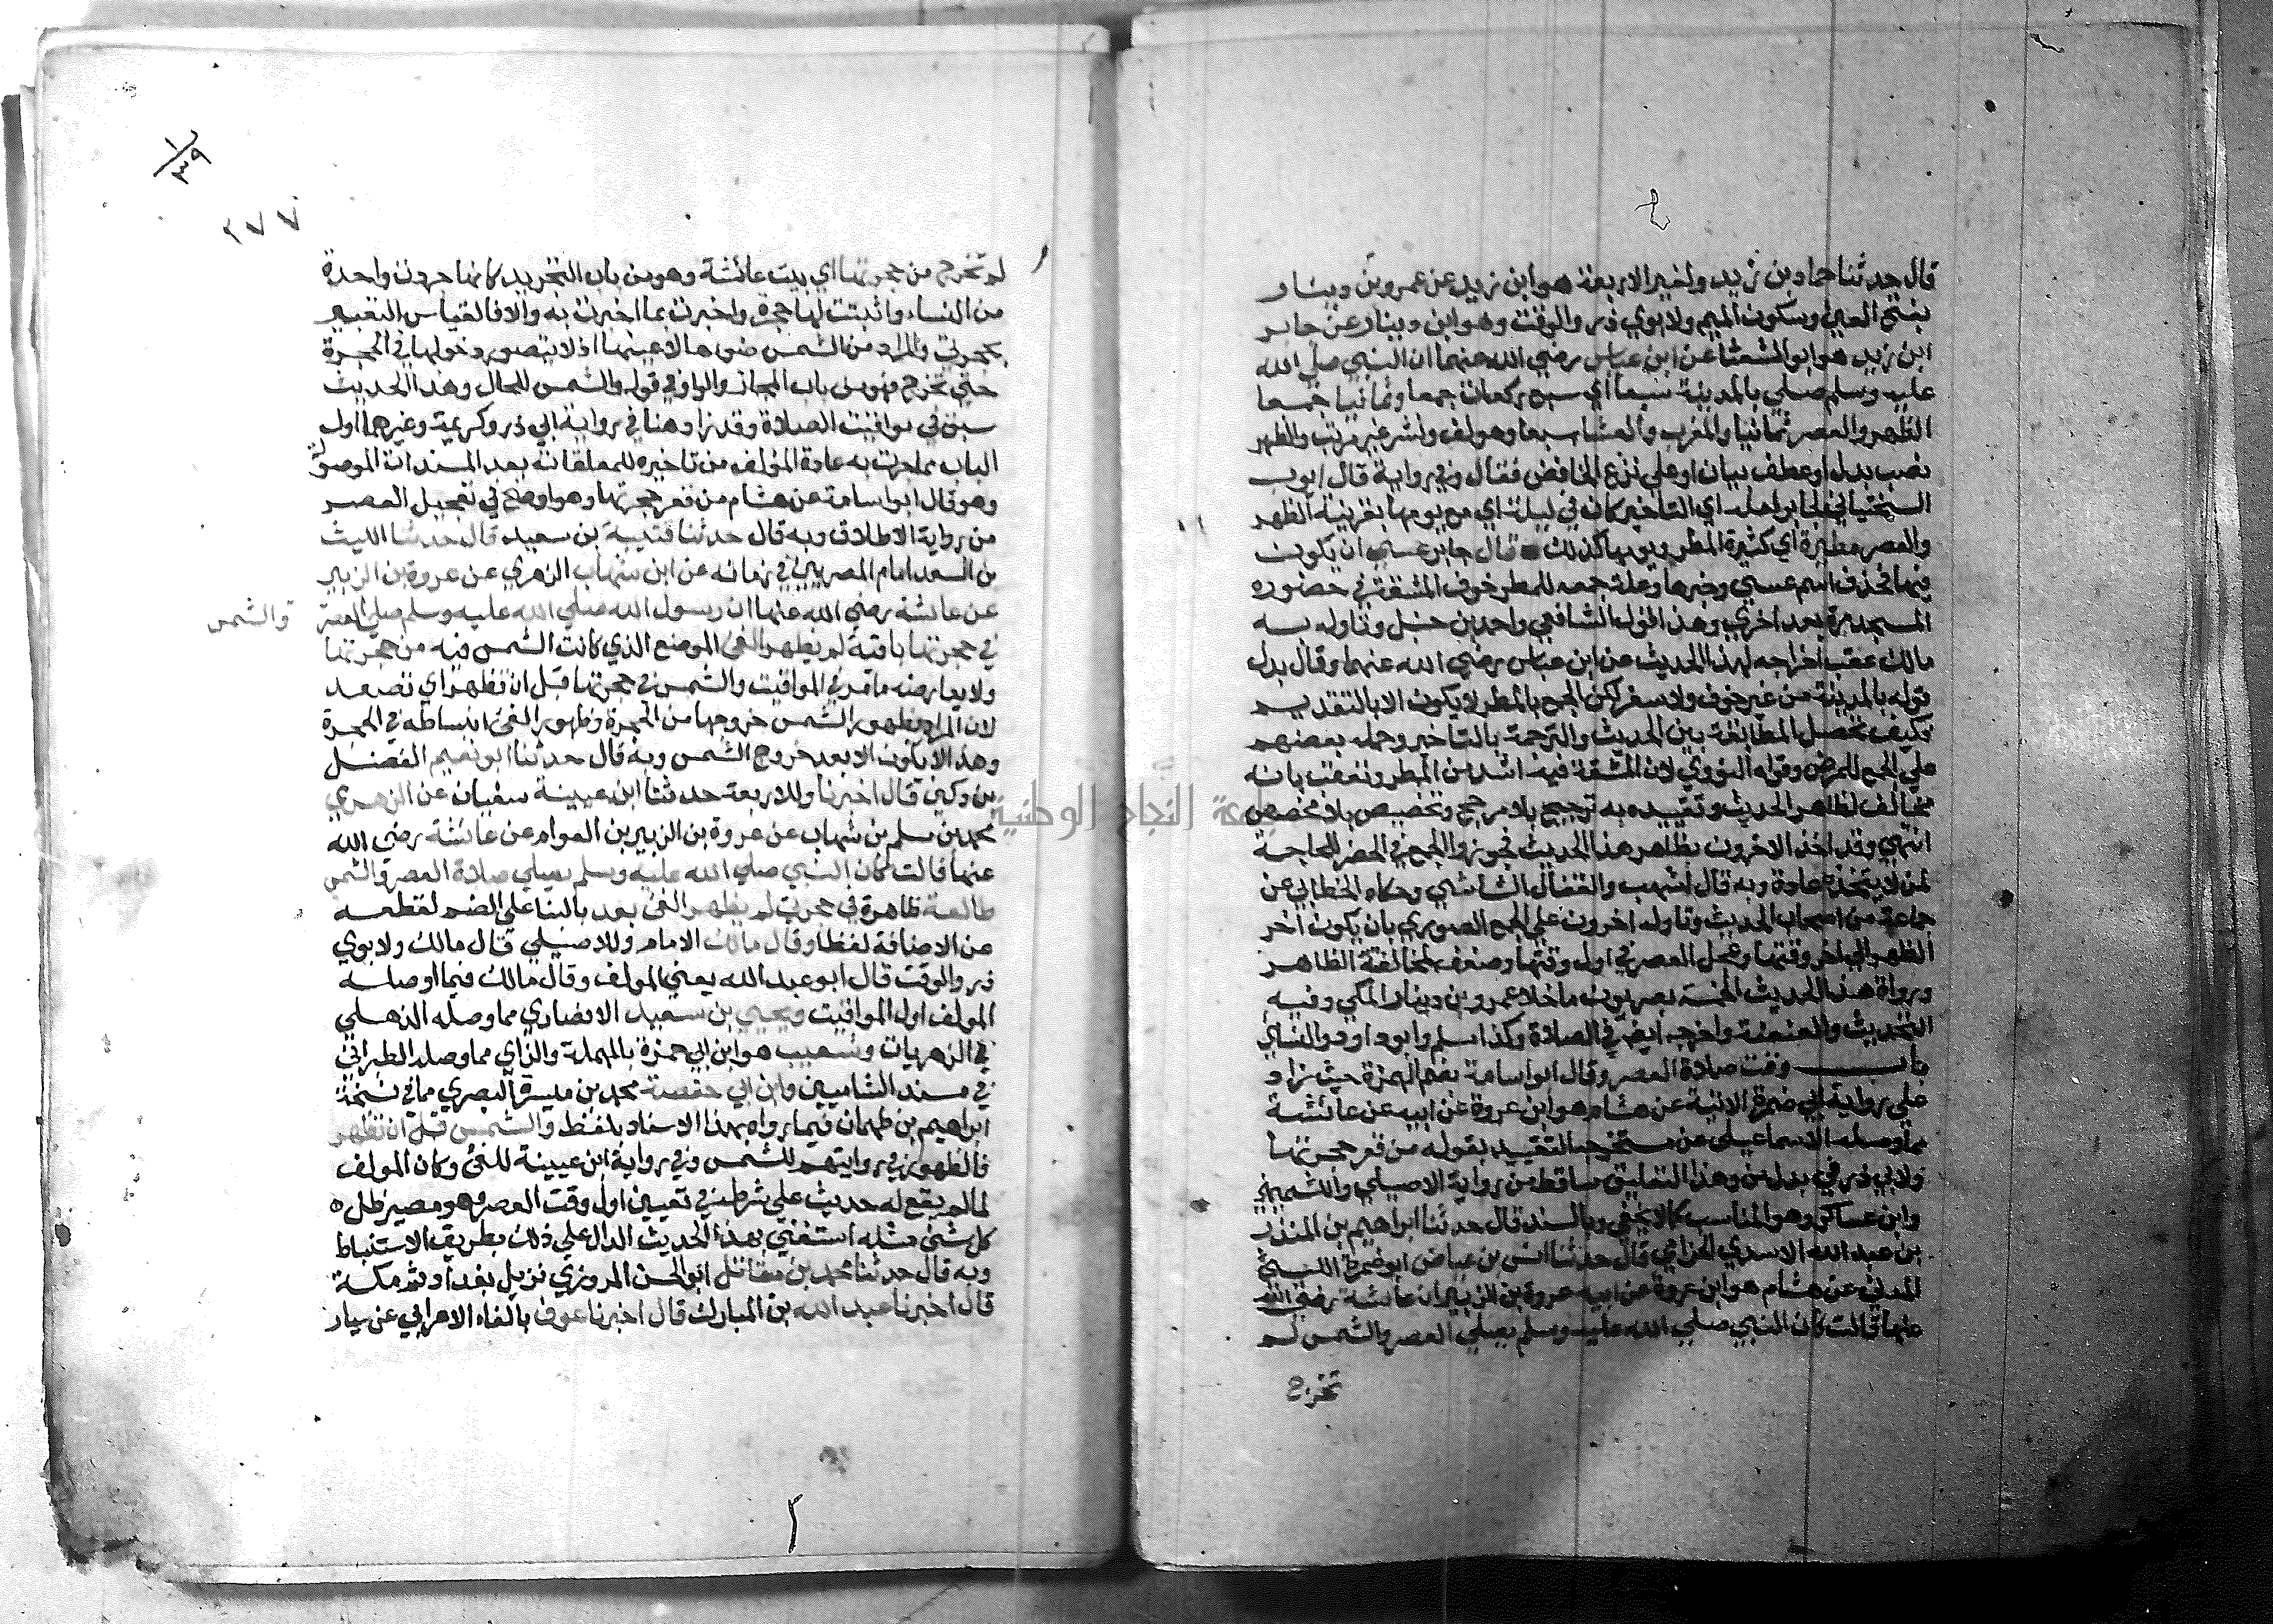 قال حدثنا حماد بن زيد ولغير الاربعة هو ابن زيد عن عمرو بن دينار
بفتح العين وسكون الميم ولابوي ذر والوقت وهو ابن دينار عن جابر
ابن زيد هو ابو الشعثا عن ابن عباس رضي الله عنهما ان النبي صلي الله
عليه وسلم صلي بالمدينة سبعا اي سبع ركعات جمعا وثمانيا جمعا
الظهر والعصر ثمانيا والمغرب والعشا سبعا وهو لف ونشر غير مرتب والظهر
نصب بدل او عطف بيان او علي نزع الخافض فقال وفي رواية قال ايوب
السختياني لجابر لعله اي التاخير كان في ليلة اي مع يومها بقرينة الظهر
والعصر مطيرة اي كثيرة المطر ويومها كذلك قال جابر عسي ان يكون
فيها فحذف اسم عسي وخبرها وعلة جمعه للمطر خوف المشقة في حضوره
المسجد مرة بعد اخري وهذا قول الشافعي واحمد بن حنبل وتاوله به
مالك عقب اخراجه لهذا الحديث عن ابن عباس رضي الله عنهما وقال بدل
قوله بالمدينة من غير خوف ولا سفر لكن الجمع بالمطر لا يكون الا بالتقديم
فكيف تحصل المطابقة بين الحديث والترجمة بالتاخير وحمله بعضهم
علي الجمع للمرض وقواه النووي لان المشقة فيه اشد من المطر وتعقب بانه
مخالف لظاهر الحديث وتقييده به ترجيح بلا مرجح وتخصيص بلا مخصص
انتهي وقد اخذ الاخرون بظاهر هذا الحديث فجوزوا الجمع في الحضر للحاجة
لمن لا يتخذه عادة وبه قال اشهب والقفال الشاشي وحكاه الخطابي عن
جاعة من اصحاب الحديث وتاوله اخرون علي الجمع الصوري بان يكون اخر
الظهر الي اخر وقتها وعجل العصر في اول وقتها وضعف لمخالفة الظاهر
ورواة هذا الحديث الخمسة بصريون ما خلا عمرو بن دينار المكي وفيه
التحديث والعنعنة واخرجه ايض في الصلاة وكذا مسلم وابو داود والنساي
باب وقت صلاة العصر وقال ابو اسامة بضم الهمزة حيث زاد
علي رواية ابي ضمرة الاتية عن هشام هو ابن عروة عن ابيه عن عائشة
مما وصله الاسماعيلي عن مستخرجه التقييد بقوله من قعر حجرتها
ولابي ذر في بدل من وهذا التعليق ساقط من رواية الاصيلي والكشميهني
وابن عساكر وهو المناسب كما لا يخفي وبالسند قال حدثنا ابراهيم بن المنذر
بن عبد الله الاسدي الحزامي قال حدثنا انس بن عياض ابو ضمرة الليثي
المدني عن هشام هو ابن عروة عن ابيه عروة بن الزبير ان عائشة رضي الله
عنها قالت كان النبي صلي الله عليه وسلم يصلي العصر والشمس لم
تخرج
٢٧٧
لم تخرج من حجرتها اي بيت عائشة وهو من باب التجريد كانها جردت واحدة
من النساء واثبتت لها حجرة واخبرت بما اخبرت به والا فالقياس التعبير
بحجرتي والمراد من الشمس ضوءها لا عينها اذ لا يتصور دخولها في الحجرة
حتي تخرج فهو من باب المجاز والواو في قوله والشمس للحال وهذا الحديث
سبق في مواقيت الصلاة وقد زاد هنا في رواية ابي ذر وكريمة وغيرهما اول
الباب بما جرت به عادة المؤلف من تاخيره للمعلقات بعد المسندات الموصولة
وهو قال ابو اسامة عن هشام من قعر حجرتها وهو اوضح في تعجيل العصر
من رواية الاطلاق وبه قال حدثنا قتيبة بن سعيد قال حدثنا الليث
بن السعد امام المصريين في زمانه عن ابن شهاب الزهري عن عروة بن الزبير
عن عائشة رضي الله عنها ان رسول الله صلي الله عليه وسلم صلي العصر والشمس
في حجرتها باقية لم يظهر الفئ الموضع الذي كانت الشمس فيه من حجرتها
ولا يعارضه ما مر في المواقيت والشمس في حجرتها قبل ان تظهر اي تصعد
لان المراد بظهور الشمس خروجها من الحجرة وظهور الفئ انبساطه في الحجرة
وهذا لا يكون الا بعد خروج الشمس وبه قال حدثنا ابو نعيم الفضل
بن دكين قال اخبرنا وللاربعة حدثنا ابن عيينة سفيان عن الزهري
محمد بن مسلم بن شهاب عن عروة بن الزبير بن العوام عن عائشة رضي الله
عنها قالت كان النبي صلي الله عليه وسلم يصلي صلاة العصر والشمس
طالعة ظاهرة في حجرتي لم يظهر الفئ بعد بالبنا علي الضم لقطعه
عن الاضافة لفظا وقال مالك الامام وللاصيلي قال مالك ولابوي
ذر والوقت قال ابو عبد الله يعني المولف وقال مالك فيما اوصله
المولف اول المواقيت ويحيي بن سعيد الانصاري مما وصله الذهلي
في الزهريات وشعيب هو ابن ابي حمزة بالمهملة والزاي مما وصله الطبراني
في مسند الشاميين وابن ابي حفصة محمد بن ميسرة البصري مما في نسخة
ابراهيم بن طهمان فيما رواه بهذا الاسناد بلفظ والشمس قبل ان تظهر
فالظهور في روايتهم للشمس وفي رواية ابن عيينة للفئ وكان المولف
لما لم يقع له حديث علي شرطه في تعيين اول وقت العصر وهو مصير ظل
كل شئ مثله استغني بهذا الحديث الدال علي ذلك بطريق الاستنباط
وبه قال حدثنا محمد بن مقاتل ابو الحسن المروزي نزيل بغداد ثم مكة
قال اخبرنا عبد الله بن المبارك قال اخبرنا عوف بالفاء الاعرابي عن سيار
جامعة النجاح الوطنية